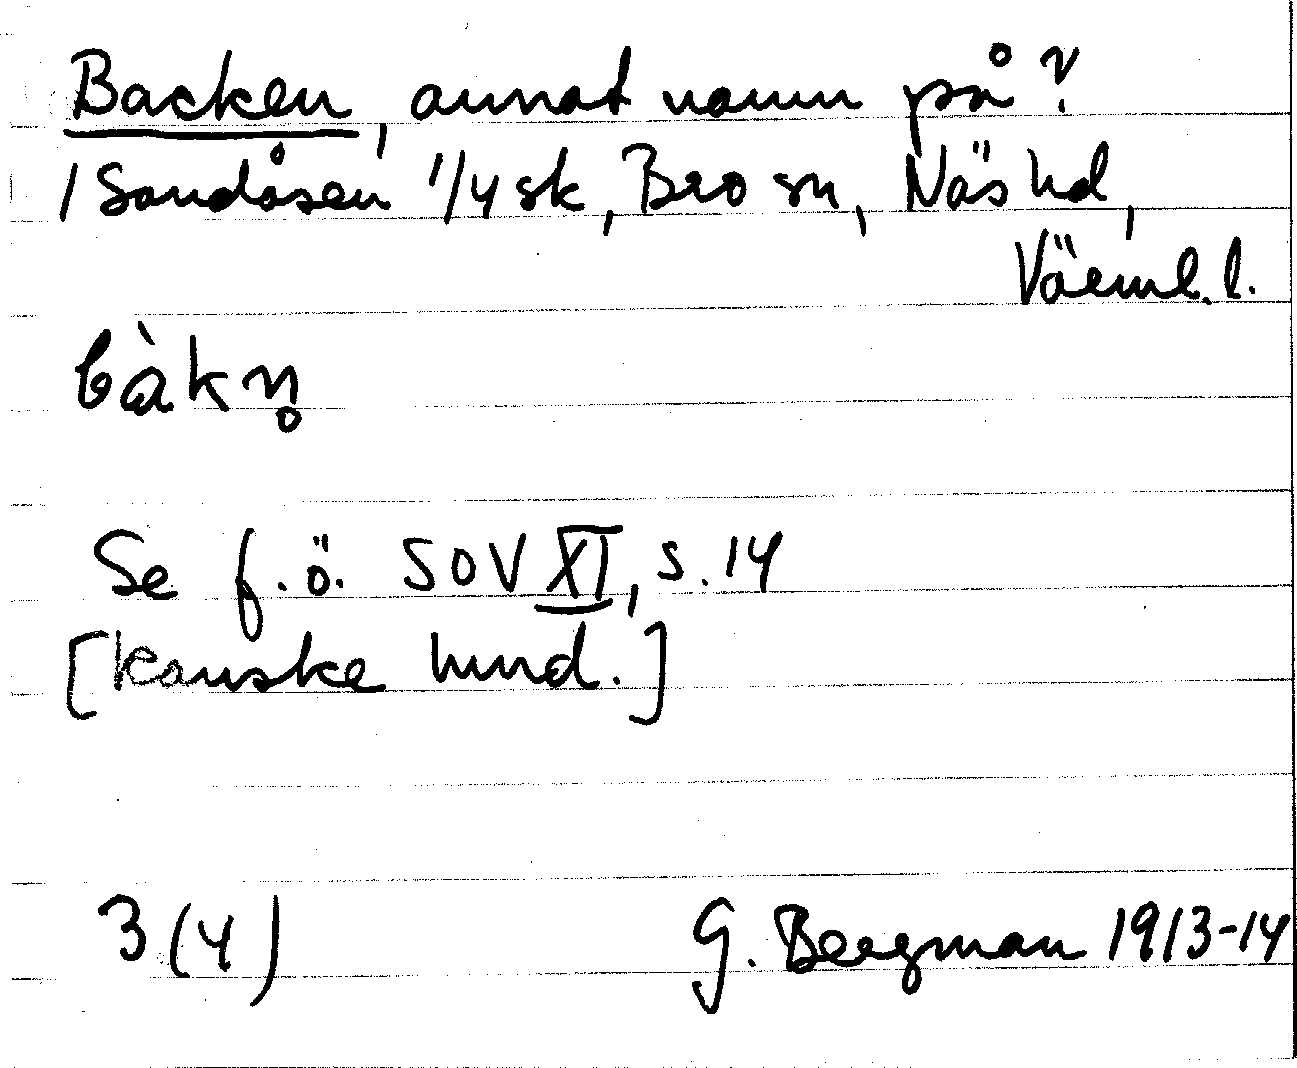 Backen, annat namn på?
/Sandåsen 1/4 sk, Bro sn, Näs hd,
Värml. l.
bàkn̥
Se f.ö. SOV XI, s. 14
[kanske hmd.]
3 (4) G. Bergman 1913-14